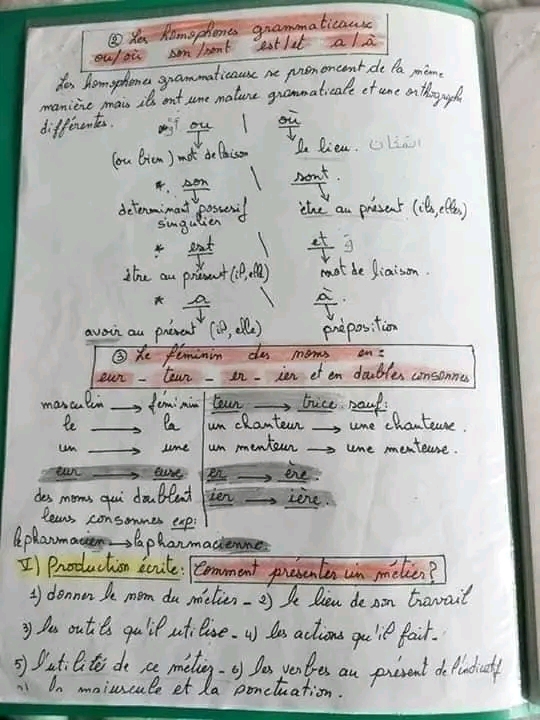 ② Les homophones grammaticaux
ou/où son/sont est/et a/à
Les homophones grammaticaux se prononcent de la même
manière mais ils ont une nature grammaticale et une orthographe
différentes.
* أو ou \ où
(ou bien) mot de liaison le lieu. المكان
* son \ sont.
determinant possesif être au présent (ils, elles)
singulier
* est \ et و
être au présent (il, elle) mot de liaison.
* a \ à.
avoir au présent (il, elle) préposition
③ Le féminin des noms en:
eur - teur - er - ier et en doubles consonnes
masculin → féminin teur → trice. sauf:
le → la un chanteur → une chanteuse.
un → une un menteur → une menteuse.
eur → euse er → ère.
des noms qui doublent ier → ière.
leurs consonnes exp:
le pharmacien → la pharmacienne.
V) Production écrite: Comment présenter un métier?
1) donner le nom du métier - 2) le lieu de son travail
3) les outils qu'il utilise - 4) les actions qu'il fait -
5) l'utilité de ce métier - 6) les verbes au présent de l'indicatif
la majuscule et la ponctuation.